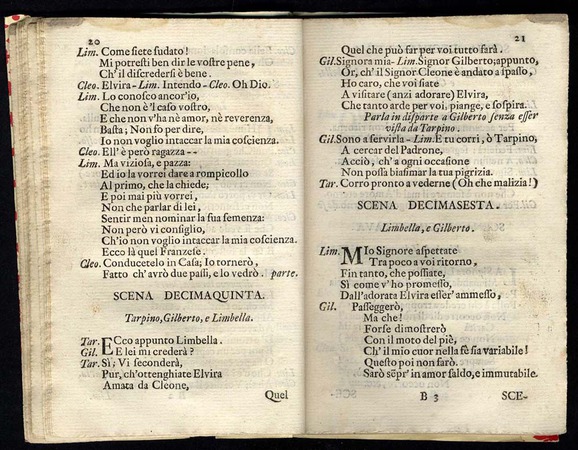 20
Lim. Come ſiete ſudato!
Mi potreſti ben dir le voſtre pene,
Ch'il diſcrederſi è bene.
Cleo. Elvira - Lim. Intendo - Cleo. Oh Dio.
Lim. Lo conoſco ancor'io,
Che non è 'l caſo voſtro,
E che non v'ha nè amor, nè reverenza,
Baſta; Non ſo per dire,
Io non voglio intaccar la mia coſcienza.
Cleo. Ell' è però ragazza - -
Lim. Ma vizioſa, e pazza:
Ed io la vorrei dare a rompicollo
Al primo, che la chiede;
E poi mai più vorrei,
Non che parlar di lei,
Sentir men nominar la ſua ſemenza:
Non però vi conſiglio,
Ch'io non voglio intaccar la mia coſcienza.
Ecco là quel Franzeſe.
Cleo. Conducetelo in Caſa; Io tornerò,
Fatto ch' avrò due paſſi, e lo vedrò. parte.
SCENA DECIMAQUINTA.
Tarpino, Gilberto, e Limbella.
Tar. ECco appunto Limbella.
Gil. E lei mi crederà?
Tar. Sì; Vi ſeconderà,
Pur, ch'ottenghiate Elvira
Amata da Cleone,
Quel
21
Quel che può far per voi tutto farà.
Gil. Signora mia - Lim. Signor Gilberto; appunto,
Or, ch' il Signor Cleone è andato a ſpaſſo,
Ho caro, che voi ſiate
A viſitare (anzi adorare) Elvira,
Che tanto arde per voi, piange, e ſoſpira.
Parla in diſparte a Gilberto ſenza eſſer
viſta da Tarpino.
Gil. Sono a ſervirla - Lim. E tu corri, ò Tarpino,
A cercar del Padron,
Acciò, ch' a ogni occaſione
Non poſſa biaſimar la tua pigrizia.
Tar. Corro pronto a vederne (Oh che malizia!)
SCENA DECIMASESTA.
Limbella, e Gilberto.
Lim. MIo Signore aſpettate
Tra poco a voi ritorno,
Fin tanto, che poſſiate,
Sì come v'ho promeſſo,
Dall'adorata Elvira eſſer' ammeſſo,
Gil. Paſſeggerò,
Ma che!
Forſe dimoſtrerò
Con il moto del piè,
Ch' il mio cuor nella fè ſia variabile!
Queſto poi non farò.
Sarò sẽpr' in amor ſaldo, e immutabile.
B 3 SCE-